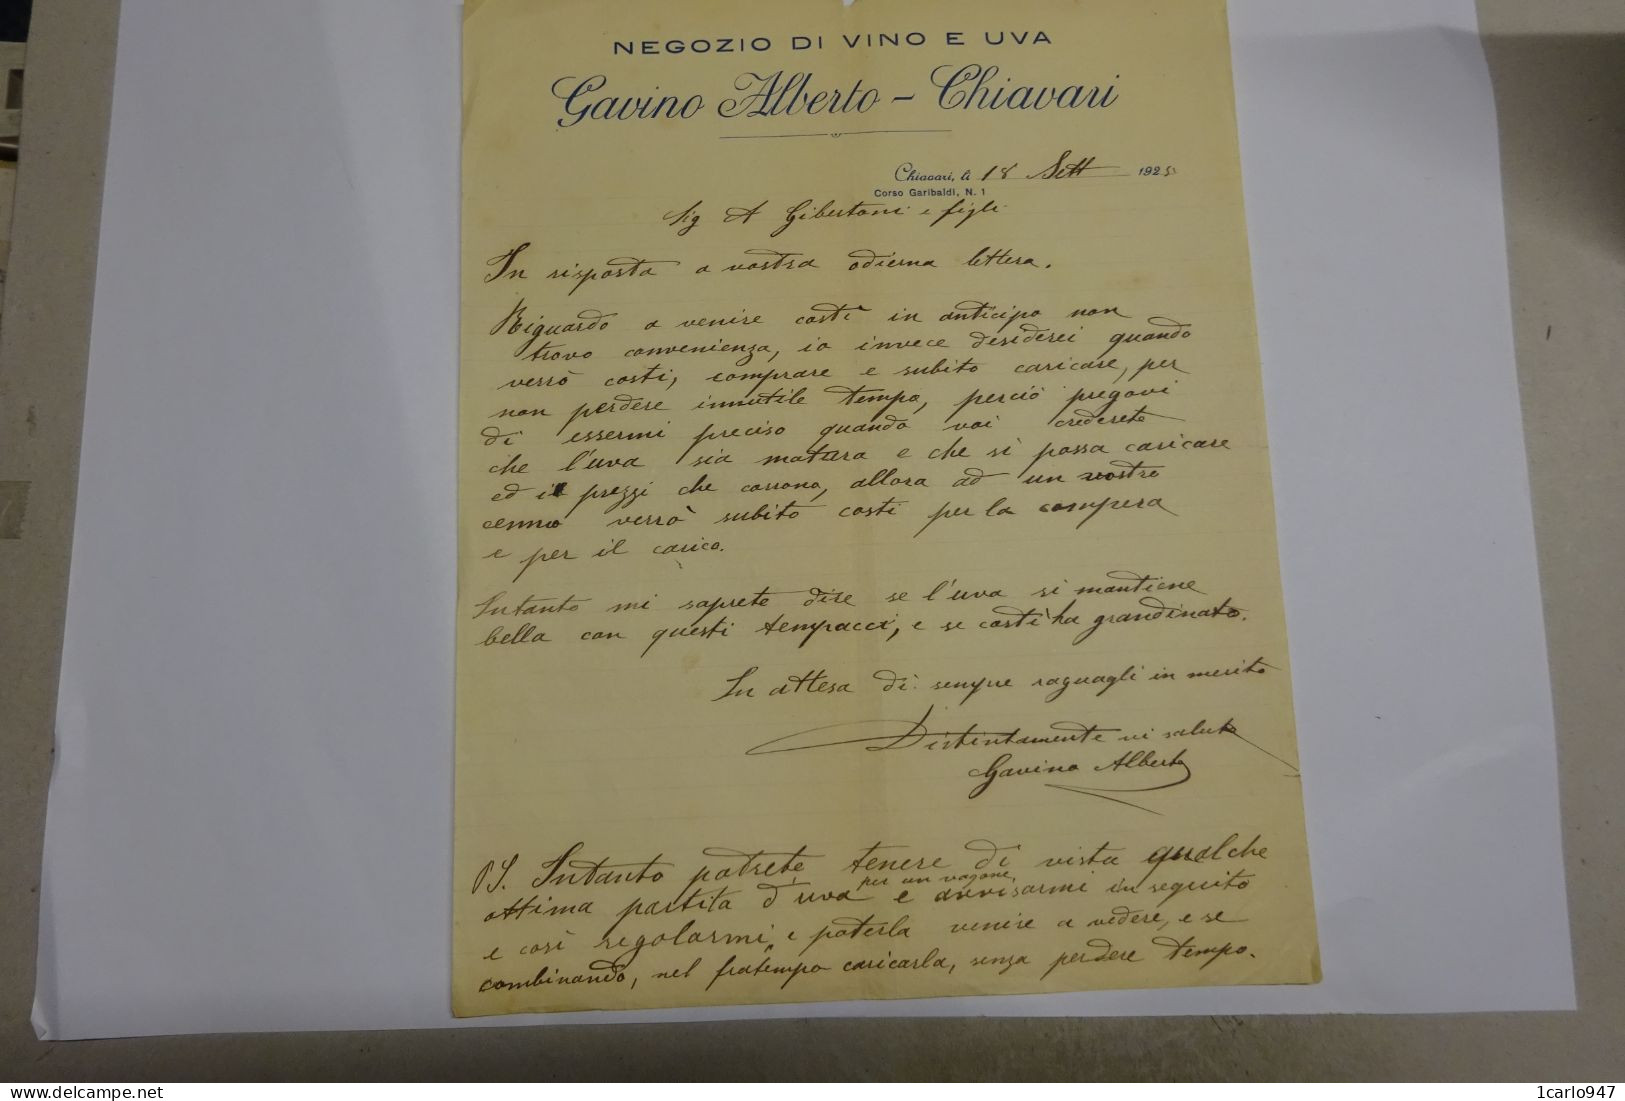 NEGOZIO DI VINO E UVA
Gavino Alberto - Chiavari
Chiavari, li 18 Sett 1925
Corso Garibaldi, N. 1
Sig A Gibertoni e figli
In risposta a vostra odierna lettera.
Riguardo a venire costì in anticipo non
trovo convenienza, io invece desiderei quando
verrò costi, comprare e subito caricare, per
non perdere innutile tempo, perciò pregovi
di essermi preciso quando voi crederete
che l'uva sia matura e che si possa caricare
ed i prezzi che corrono, allora ad un vostro
cenno verrò subito costi per la compera
e per il carico.
Intanto mi saprete dire se l'uva si mantiene
bella con questi tempacci, e se costì ha grandinato.
In attesa di sempre raguagli in merito
Distintamente vi saluto
Gavino Alberto
PS. Intanto potrete tenere di vista qualche
per un vagone
ottima partita d'uva e avvisarmi in seguito
e così regolarmi e poterla venire a vedere, e se
combinando, nel fratempo caricarla, senza perdere tempo.
delcampe.net
1carlo947